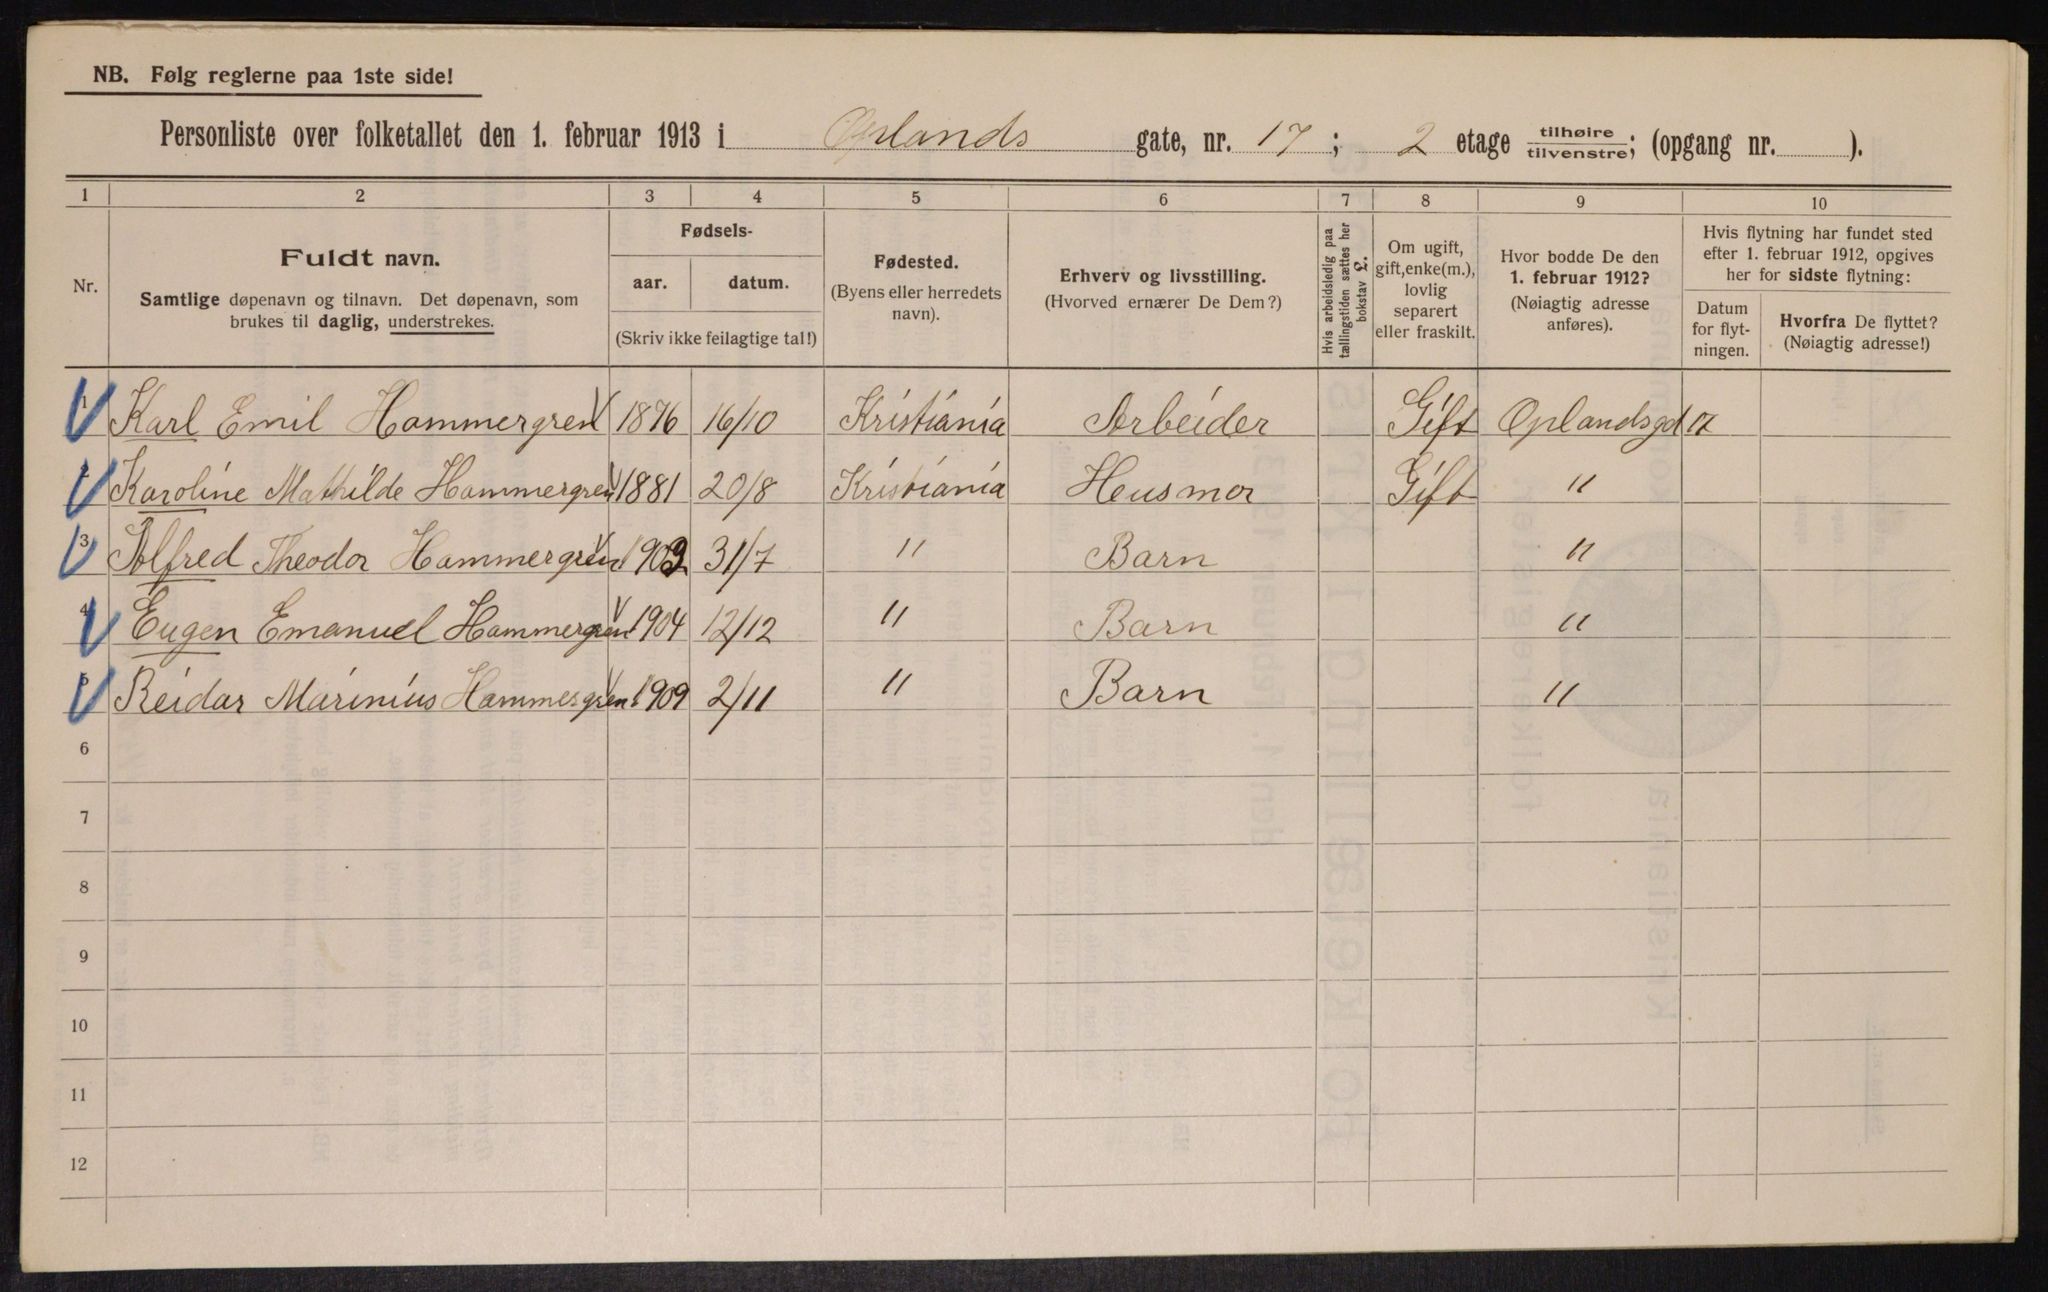 NB. Følg reglerne paa 1ste side!
Personliste over folketallet den 1. februar 1913 i Oplands gate, nr. 17 ; 2 etage tilhøire/tilvenstre; (opgang nr. ).
1 2 3 4 5 6 7 8 9 10
Nr.
Fuldt navn.
Samtlige døpenavn og tilnavn. Det døpenavn, som
brukes til daglig, understrekes.
Fødsels-
aar. datum.
(Skriv ikke feilagtige tal!)
Fødested.
(Byens eller herredets
navn).
Erhverv og livsstilling.
(Hvorved ernærer De Dem?)
Hvis arbeidsledig paa
tællingstiden sættes her
bokstav L.
Om ugift,
gift, enke(m.),
lovlig
separert
eller fraskilt.
Hvor bodde De den
1. februar 1912?
(Nøiagtig adresse
anføres).
Hvis flytning har fundet sted
efter 1. februar 1912, opgives
her for sidste flytning:
Datum
for flyt-
ningen.
Hvorfra De flyttet?
(Nøiagtig adresse!)
1 Karl Emil Hammergren 1876 16/10 Kristiania Arbeider Gift Oplandsgd 17
2 Karoline Mathilde Hammergren 1881 20/8 Kristiania Husmor Gift "
3 Alfred Theodor Hammergren 31/7 " Barn "
4 Eugen Emanuel Hammergren 1904 12/12 " Barn "
5 Reidar Marinius Hammergren 1909 2/11 " Barn "
6
7
8
9
10
11
12